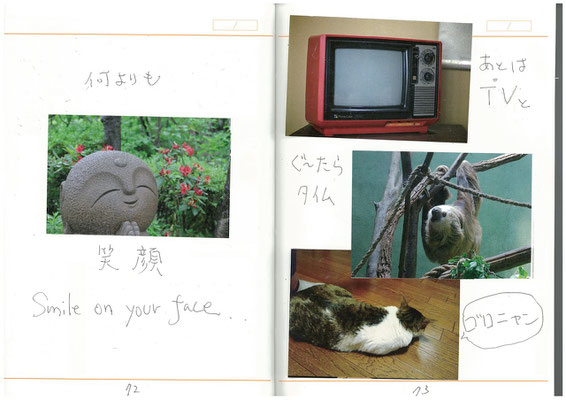 何よりも
笑顔
Smile on your face...
72
あとは
TVと
ぐ〜たら
タイム
ゴロニャン
73